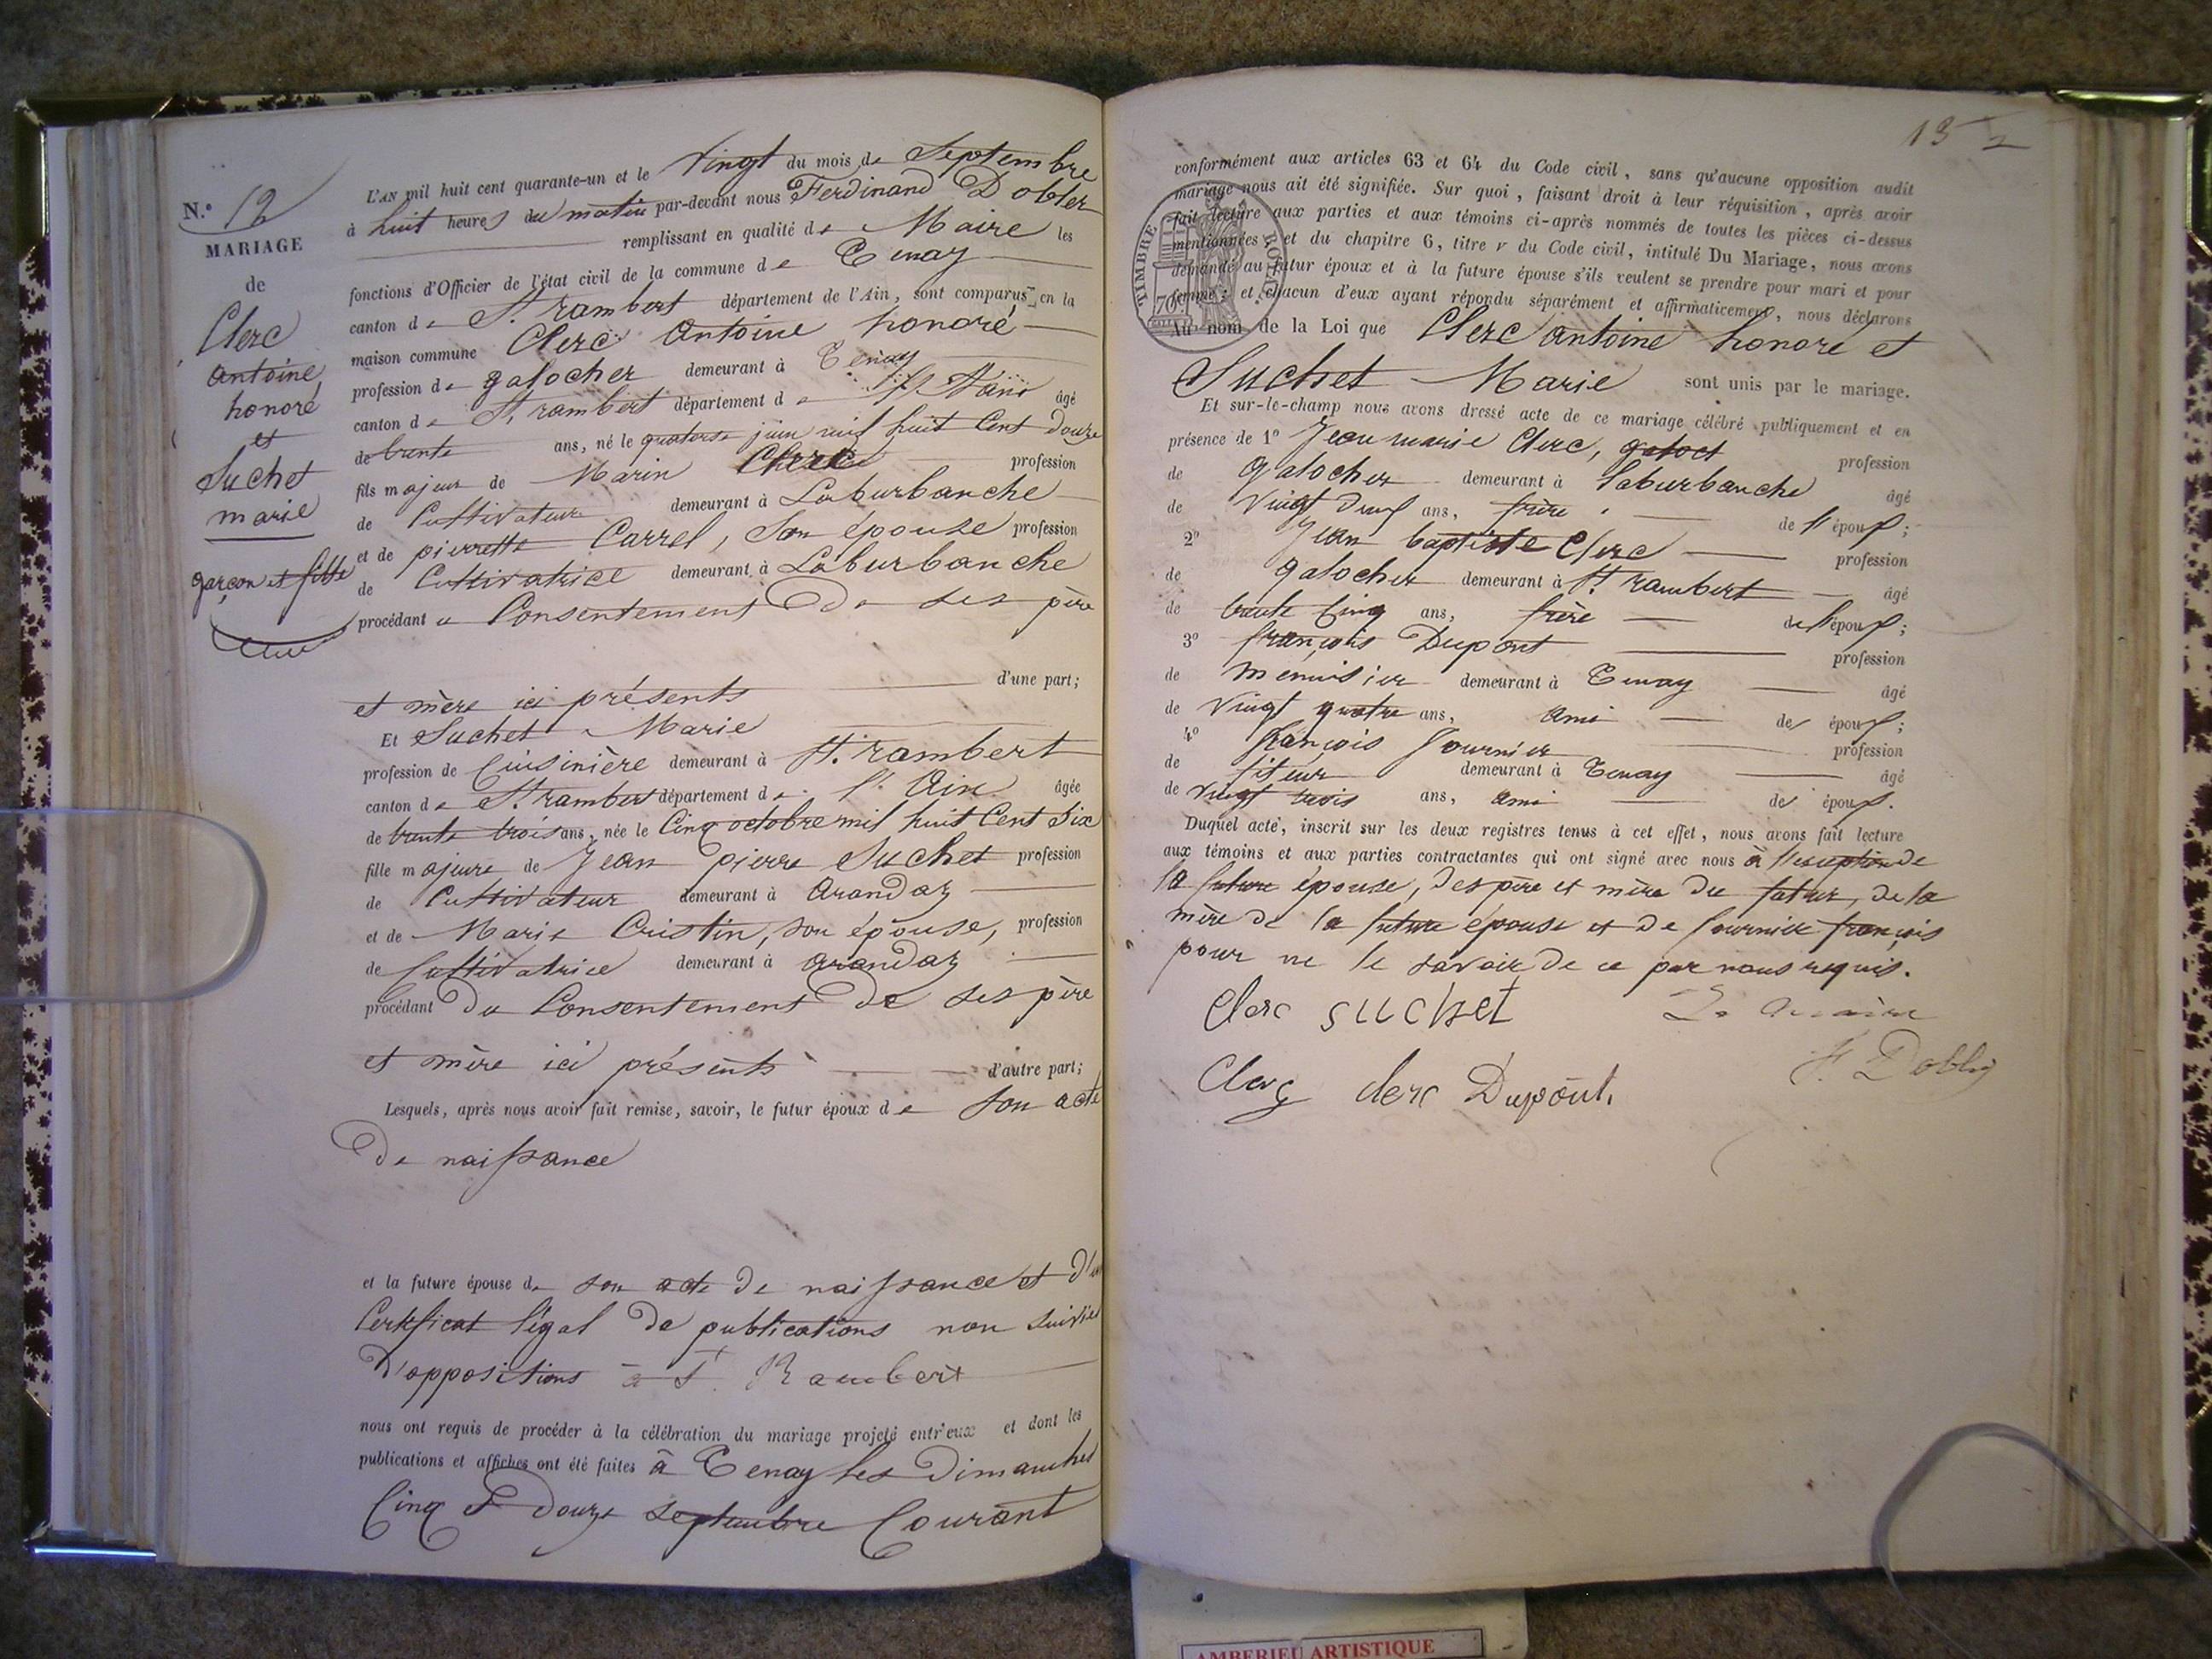 N.º 12
MARIAGE
de
Clerc
antoine
honoré
et
Suchet
marie
garçon et fille
L'AN mil huit cent quarante-un et le Vingt du mois de Septembre
à huit heures du matin par-devant nous Ferdinand Dobler
remplissant en qualité de Maire les
fonctions d'Officier de l'état civil de la commune de Tenay
canton de St. rambert département de l'Ain, sont comparus en la
maison commune Clerc Antoine honoré
profession de galocher demeurant à Tenay
canton de St. rambert département de âgé
de trente ans, né le quatorse juin mil huit Cent Douze
fils majeur de Marin Clerc profession
de Cultivateur demeurant à Laburbanche
et de pierrette Carrel, Son épouse profession
de Cultivatrice demeurant à Laburbanche
procédant u Consentement De ses père
et mère ici présents d'une part;
Et Suchet Marie
profession de Cuisinière demeurant à St. rambert
canton de St. rambert département de l'Ain âgée
de trente trois ans, née le Cinq octobre mil huit Cent Six
fille majeure de Jean pierre Suchet profession
de Cultivateur demeurant à Arandaz
et de Marie Cristin, son épouse, profession
de Cultivatrice demeurant à arandaz
procédant Du Consentement De ses père
et mère ici présents d'autre part;
Lesquels, après nous avoir fait remise, savoir, le futur époux de son acte
De naissance
et la future épouse de son acte De naissance et D'un
Certificat légal De publications non suivies
D'oppositions à St. Rambert
nous ont requis de procéder à la célébration du mariage projeté entr'eux et dont les
publications et affiches ont été faites à Tenay les Dimanches
Cinq et Douze septembre Courant
13 2
conformément aux articles 63 et 64 du Code civil, sans qu'aucune opposition audit
mariage nous ait été signifiée. Sur quoi, faisant droit à leur réquisition, après avoir
fait lecture aux parties et aux témoins ci-après nommés de toutes les pièces ci-dessus
mentionnées, et du chapitre 6, titre v du Code civil, intitulé Du Mariage, nous avons
demandé au futur époux et à la future épouse s'ils veulent se prendre pour mari et pour
femme; et chacun d'eux ayant répondu séparément et affirmativement, nous déclarons
TIMBRE ROYAL
70
Au nom de la Loi que Clerc antoine honoré et
Suchet Marie sont unis par le mariage.
Et sur-le-champ nous avons dressé acte de ce mariage célébré publiquement et en
présence de 1º Jean marie Clerc, galoct profession
de galocher demeurant à Laburbanche âgé
de Vingt Deux ans, frère de l'époux;
2º Jean baptiste Clerc profession
de galocher demeurant à St. rambert âgé
de trente Cinq ans, frère de l'époux;
3º françois Dupont profession
de menuisier demeurant à Tenay âgé
de Vingt quatre ans, Ami de époux;
4º françois fournier profession
de demeurant à Tenay âgé
de Vingt trois ans, Ami de époux.
Duquel acte, inscrit sur les deux registres tenus à cet effet, nous avons fait lecture
aux témoins et aux parties contractantes qui ont signé avec nous à l'exception de
la future épouse, Des père et mère Du futur, de la
mère De la future épouse et De fournier françois
pour ne le savoir De ce par nous requis.
Clerc SUCHET Le maire
F. Dobler
Clerc clerc Dupont.
AMBERIEU ARTISTIQUE